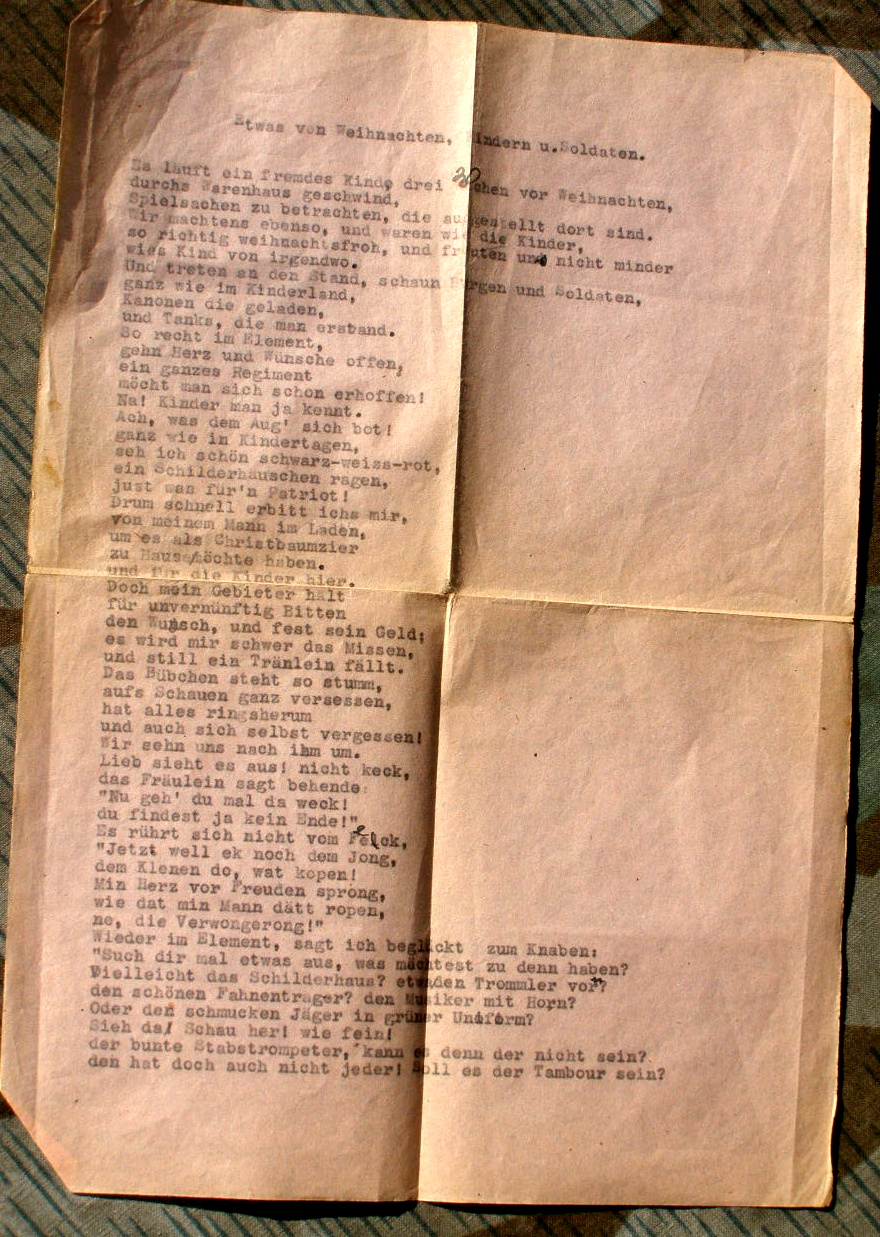 Etwas von Weihnachten, Kindern u.Soldaten.
Es läuft ein fremdes Kind, drei Wochen vor Weihnachten,
durchs Warenhaus geschwind,
Spielsachen zu betrachten, die ausgestellt dort sind.
Wir machtens ebenso, und waren wie die Kinder,
so richtig weihnachtsfroh, und freuten uns nicht minder
wies Kind von irgendwo.
Und treten an den Stand, schaun Burgen und Soldaten,
ganz wie im Kinderland,
Kanonen die geladen,
und Tanks, die man erstand.
So recht im Element,
gehn Herz und Wünsche offen,
ein ganzes Regiment
möcht man sich schon erhoffen!
Na! Kinder man ja kennt.
Ach, was dem Aug' sich bot!
ganz wie in Kindertagen,
seh ich schön schwarz-weiss-rot,
ein Schilderhäuschen ragen,
just was für'n Patriot!
Drum schnell erbitt ichs mir,
von meinem Mann im Laden,
um es als Christbaumzier
zu Haus/möchte haben.
und für die Kinder hier.
Doch mein Gebieter hält
für unvernünftig Bitten
den Wunsch, und fest sein Geld;
es wird mir schwer das Missen,
und still ein Tränlein fällt.
Das Bübchen steht so stumm,
aufs Schauen ganz versessen,
hat alles ringsherum
und auch sich selbst vergessen!
Wir sehn uns nach ihm um.
Lieb sieht es aus! nicht keck,
das Fräulein sagt behende:
"Nu geh' du mal da weck!
du findest ja kein Ende!"
Es rührt sich nicht vom Fleck,
"Jetzt well ek noch dem Jong,
dem Klenen do, wat kopen!
Min Herz vor Freuden sprong,
wie dat min Mann dätt ropen,
ne, die Verwongerong!"
Wieder im Element, sagt ich beglückt zum Knaben:
"Such dir mal etwas aus, was möchtest zu denn haben?
Vielleicht das Schilderhaus? etwa/den Trommler vor?
den schönen Fahnenträger? den Musiker mit Horn?
Oder den schmucken Jäger in grüner Uniform?
Sieh da/ Schau her! wie fein!
der bunte Stabstrompeter, kann es denn der nicht sein?
den hat doch auch nicht jeder! Soll es der Tambour sein?